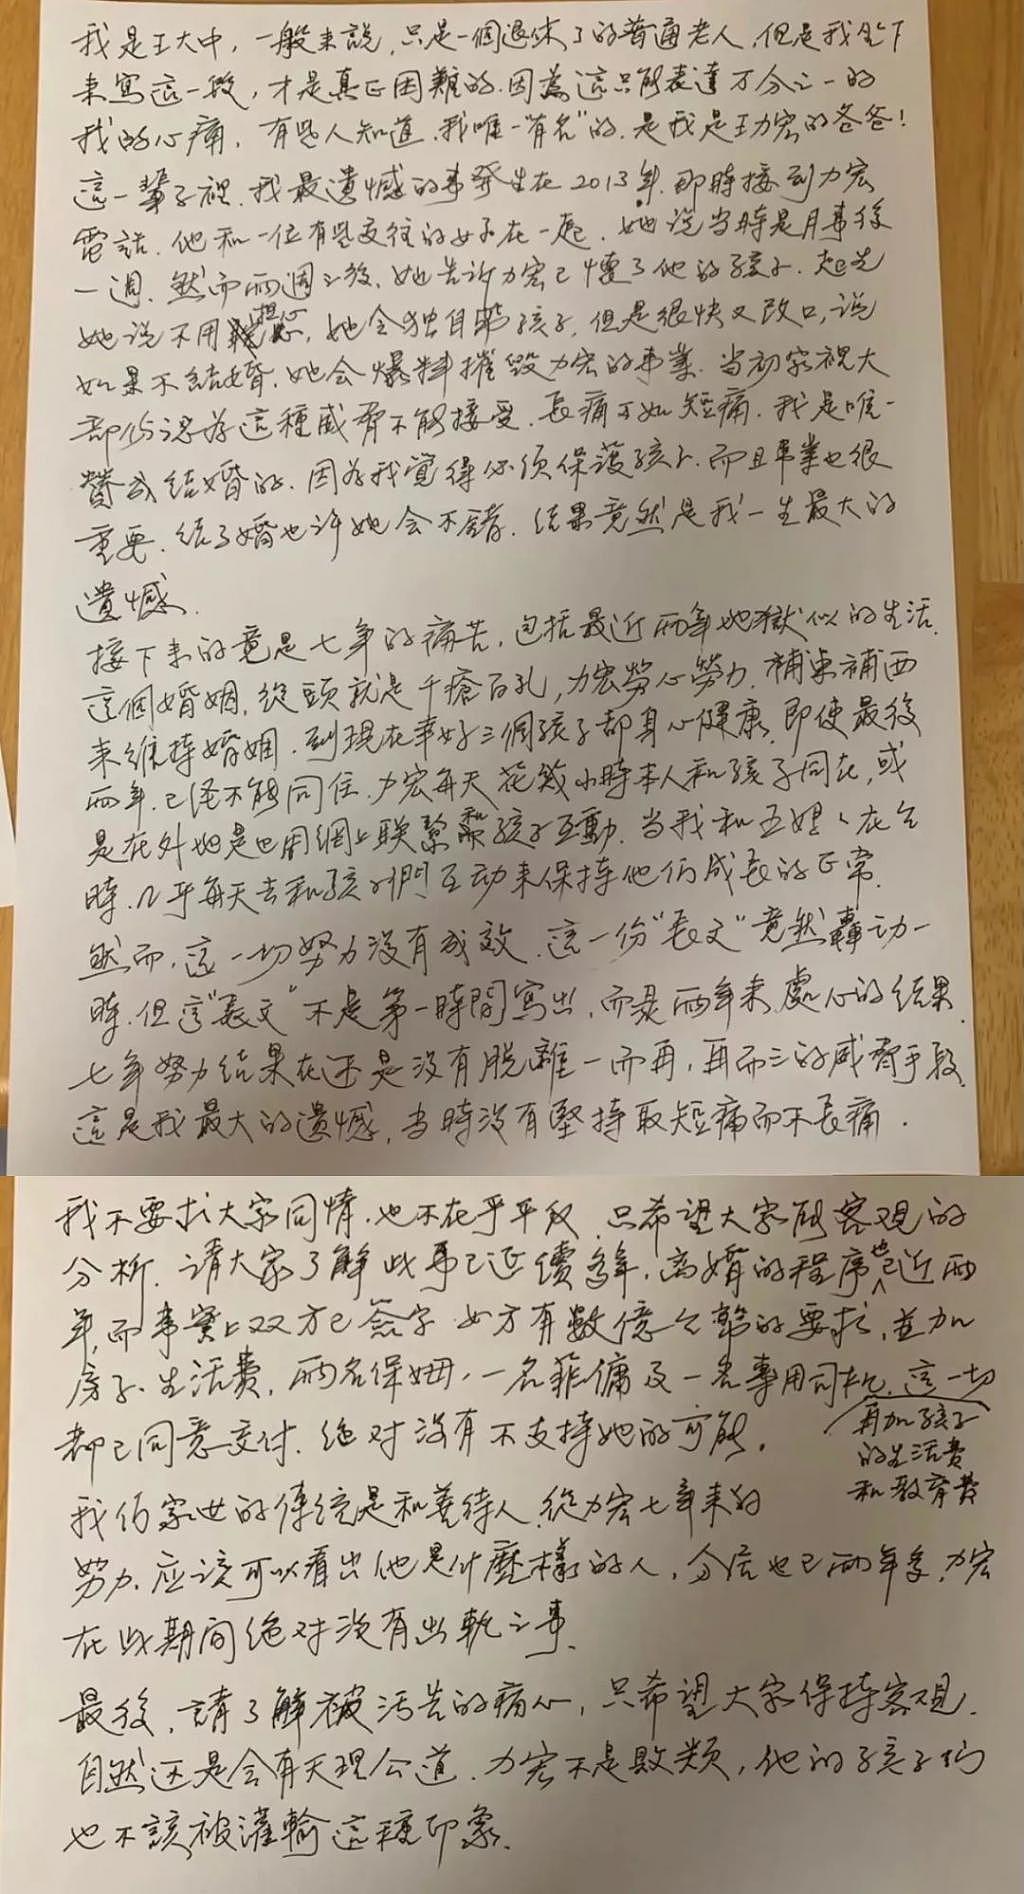 我是王大中，一般来說，只是一個退休了的普通老人，但是我坐下
来寫這一段，才是真正困難的．因為這只能表達万分之一的
我的心痛，有些人知道．我唯一"有名"的．是我是王力宏的爸爸！
這一輩子裡．我最遺憾的事発生在 2013年．即時接到力宏
電話．他和一位有些交往的女子在一起．她說当時是月事後
一週．然而兩週之後．她告訴力宏已懷了他的孩子．起先
她说不用擔心，她会独自帶孩子，但是很快又改口，說
如果不結婚．她会爆料摧毀力宏的事業．当初家裡大
部份認为這種威脅不能接受．長痛不如短痛．我是唯一
贊成結婚的．因为我覺得必须保護孩子．而且事業也很
重要．結了婚也許她会不錯．结果竟然是我一生最大的
遺憾．
接下来的竟是七年的痛苦，包括最近兩年地獄似的生活．
這個婚姻．從頭就是千瘡百孔，力宏勞心勞力．補東補西
来維持婚姻．到現在幸好三個孩子都身心健康．即使最後
兩年．已经不能同住．力宏每天花幾小時本人和孩子同在，或
是在外地是也用網上联繫和孩子互動．当我和王媽媽在台
時．几乎每天去和孩子們互动来保持他们成長的正常．
然而，這一切努力没有成效．這一份"長文"竟然轟动一
時．但這"長文"不是第一時間寫出，而是兩年来處心的结果．
七年努力结果在还是没有脫離一而再，再而三的威脅手段．
這是我最大的遺憾，当時没有堅持取短痛而不長痛．
我不要求大家同情．也不在乎平反．只希望大家能客观的
分析．請大家了解此事已延續多年，离婚的程序也已近兩
年，而事實上双方已簽字．女方有數億台幣的要求，並加
房子．生活費，兩名保姆，一名菲傭及一名專用司机，這一切
再加孩子
的生活费
和教育费
都已同意交付．绝对没有不支持她的可能．
我们家世的傳統是和善待人．從力宏七年来的
努力．应该可以看出他是什麼樣的人，分居也已兩年多．力宏
在此期間绝对没有出軌之事．
最後，請了解被污告的痛心，只希望大家保持客观．
自然还是会有天理公道．力宏不是敗類，他的孩子们
也不該被灌輸這種印象．